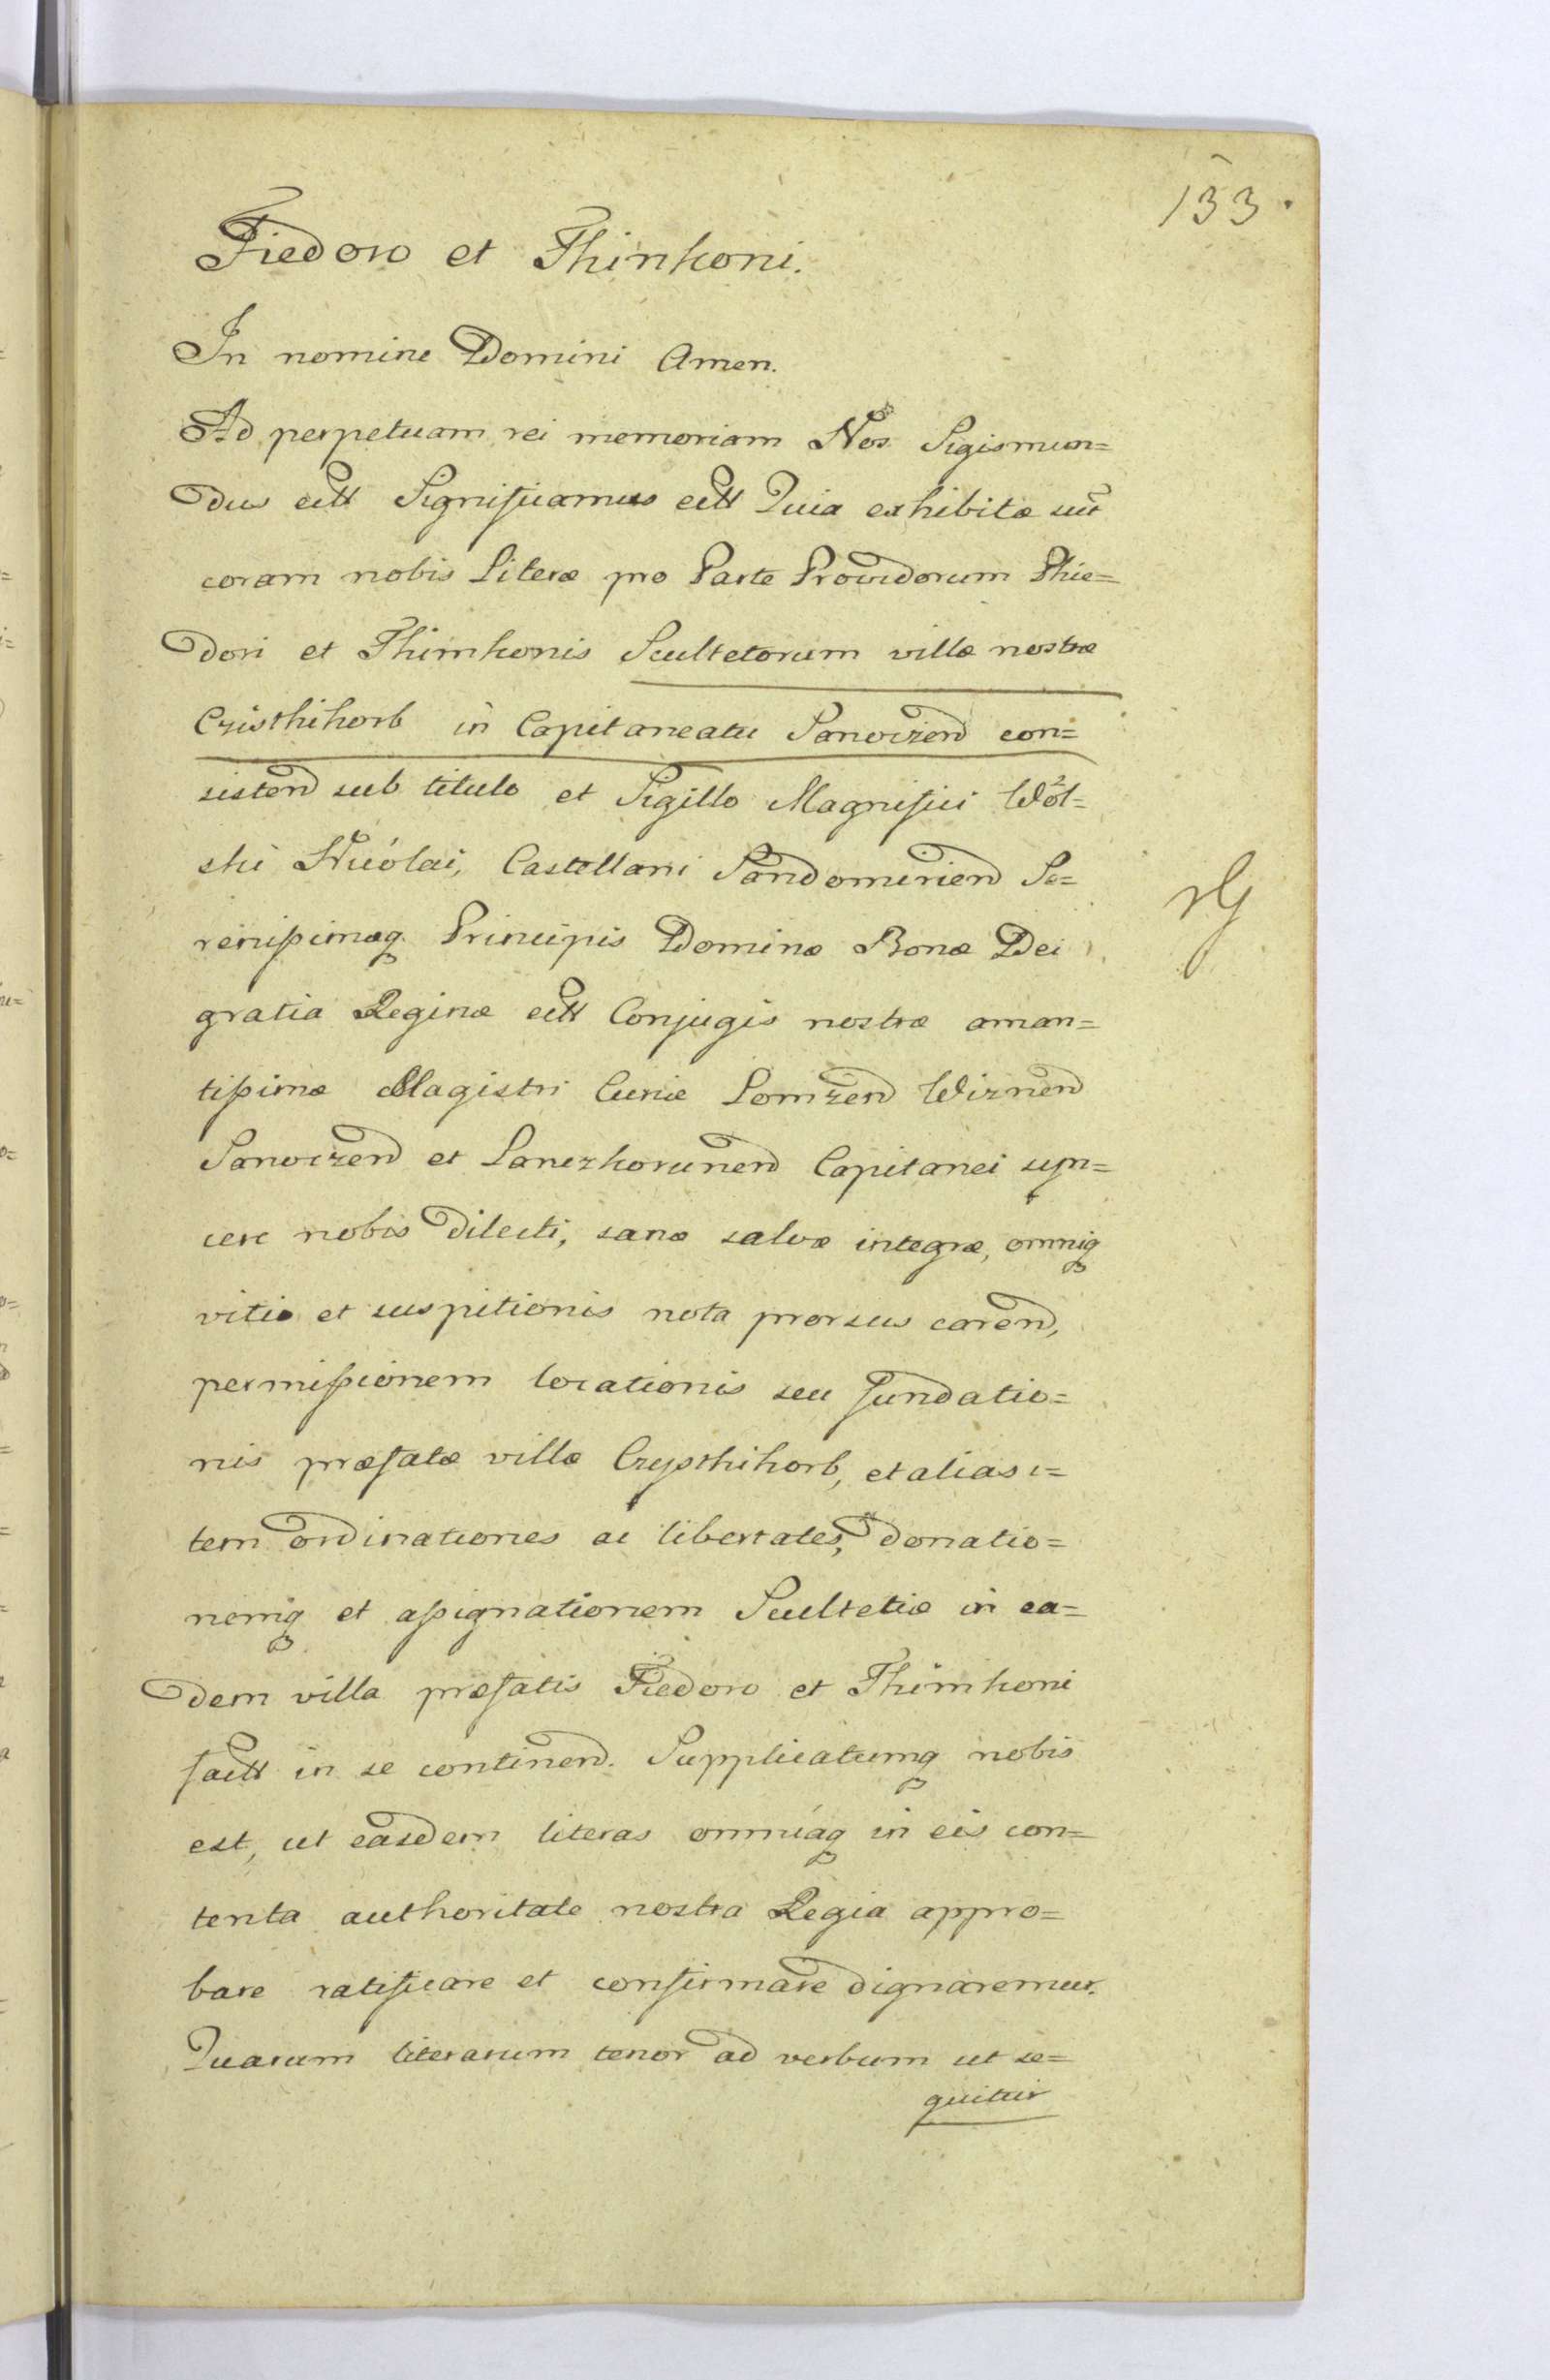 133.
Fiedoro et Thimkoni.
In nomine Domini Amen.
Ad perpetuam rei memoriam Nos Sigismun=
dus ectt Significamus ectt Quia exhibitæ sūt
coram nobis Literæ pro Parte Providorum Phie=
dori et Thimkonis Scultetorum villæ nostræ
Czisthihorb in Capitaneatu Sanoczen̄ con=
sisten̄ sub titulo et Sigillo Magnifici Wol=
ski Nicolai, Castellani Sandomirien̄ Se=
renissimæq Principis Dominæ Bonæ Dei
gratia Reginæ ectt Conjugis nostræ aman=
tissimæ Magistri Curiæ Lomzen̄ Wiznen̄
Sanoczen̄ et Lanczkorunen̄ Capitanei syn=
cere nobis dilecti, sanæ salvæ integræ, omniq
vitio et suspitionis nota prorsus caren̄,
permissionem locationis seu fundatio=
nis præfatæ villæ Czysthihorb, et alias i=
tem ordinationes ac libertates, donatio=
nemq et assignationem Scultetiæ in ea=
dem villa præfatis Fiedoro et Thimkoni
factt in se continen̄. Supplicatumq nobis
est, ut easdem literas omniaq in eis con=
tenta authoritate nostra Regia appro=
bare ratificare et confirmare dignaremur.
Quarum literarum tenor ad verbum ut se=
quitur